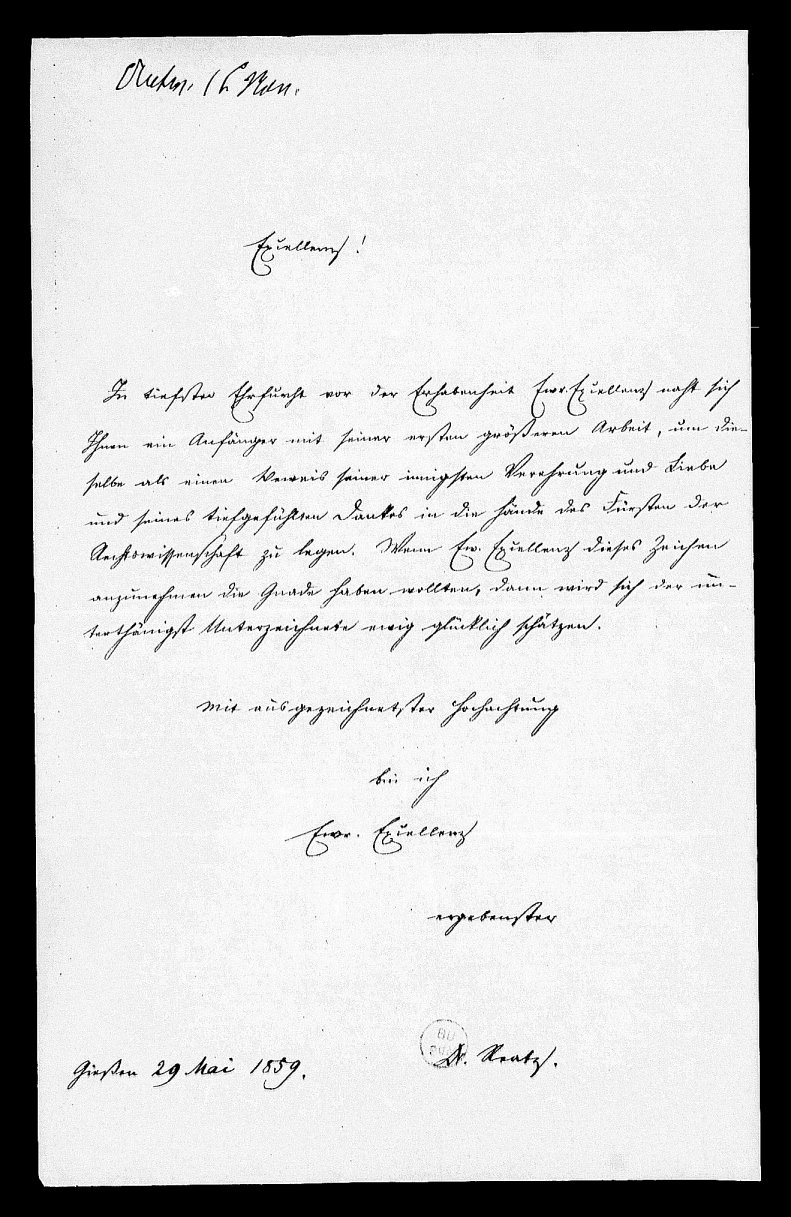 Antw. 16 Nov.
Excellenz!
In tiefster Ehrfurcht vor der Erhabenheit Ewr. Excellenz naht sich
Ihnen ein Anfänger mit seiner ersten größeren Arbeit, um die-
selbe als einen Beweis seiner innigsten Verehrung und Liebe
und seines tiefgefühlten Dankes in die Hände des Fürsten der
Rechtswissenschaft zu legen. Wenn Ew. Excellenz dieses Zeichen
anzunehmen die Gnade haben wollten, dann wird sich der un-
terthänigst Unterzeichnete ewig glücklich schätzen.
Mit ausgezeichnetster Hochachtung
bin ich
Ewr. Excellenz
ergebenster
Dr. Reatz.
Gießen 29 Mai 1859.